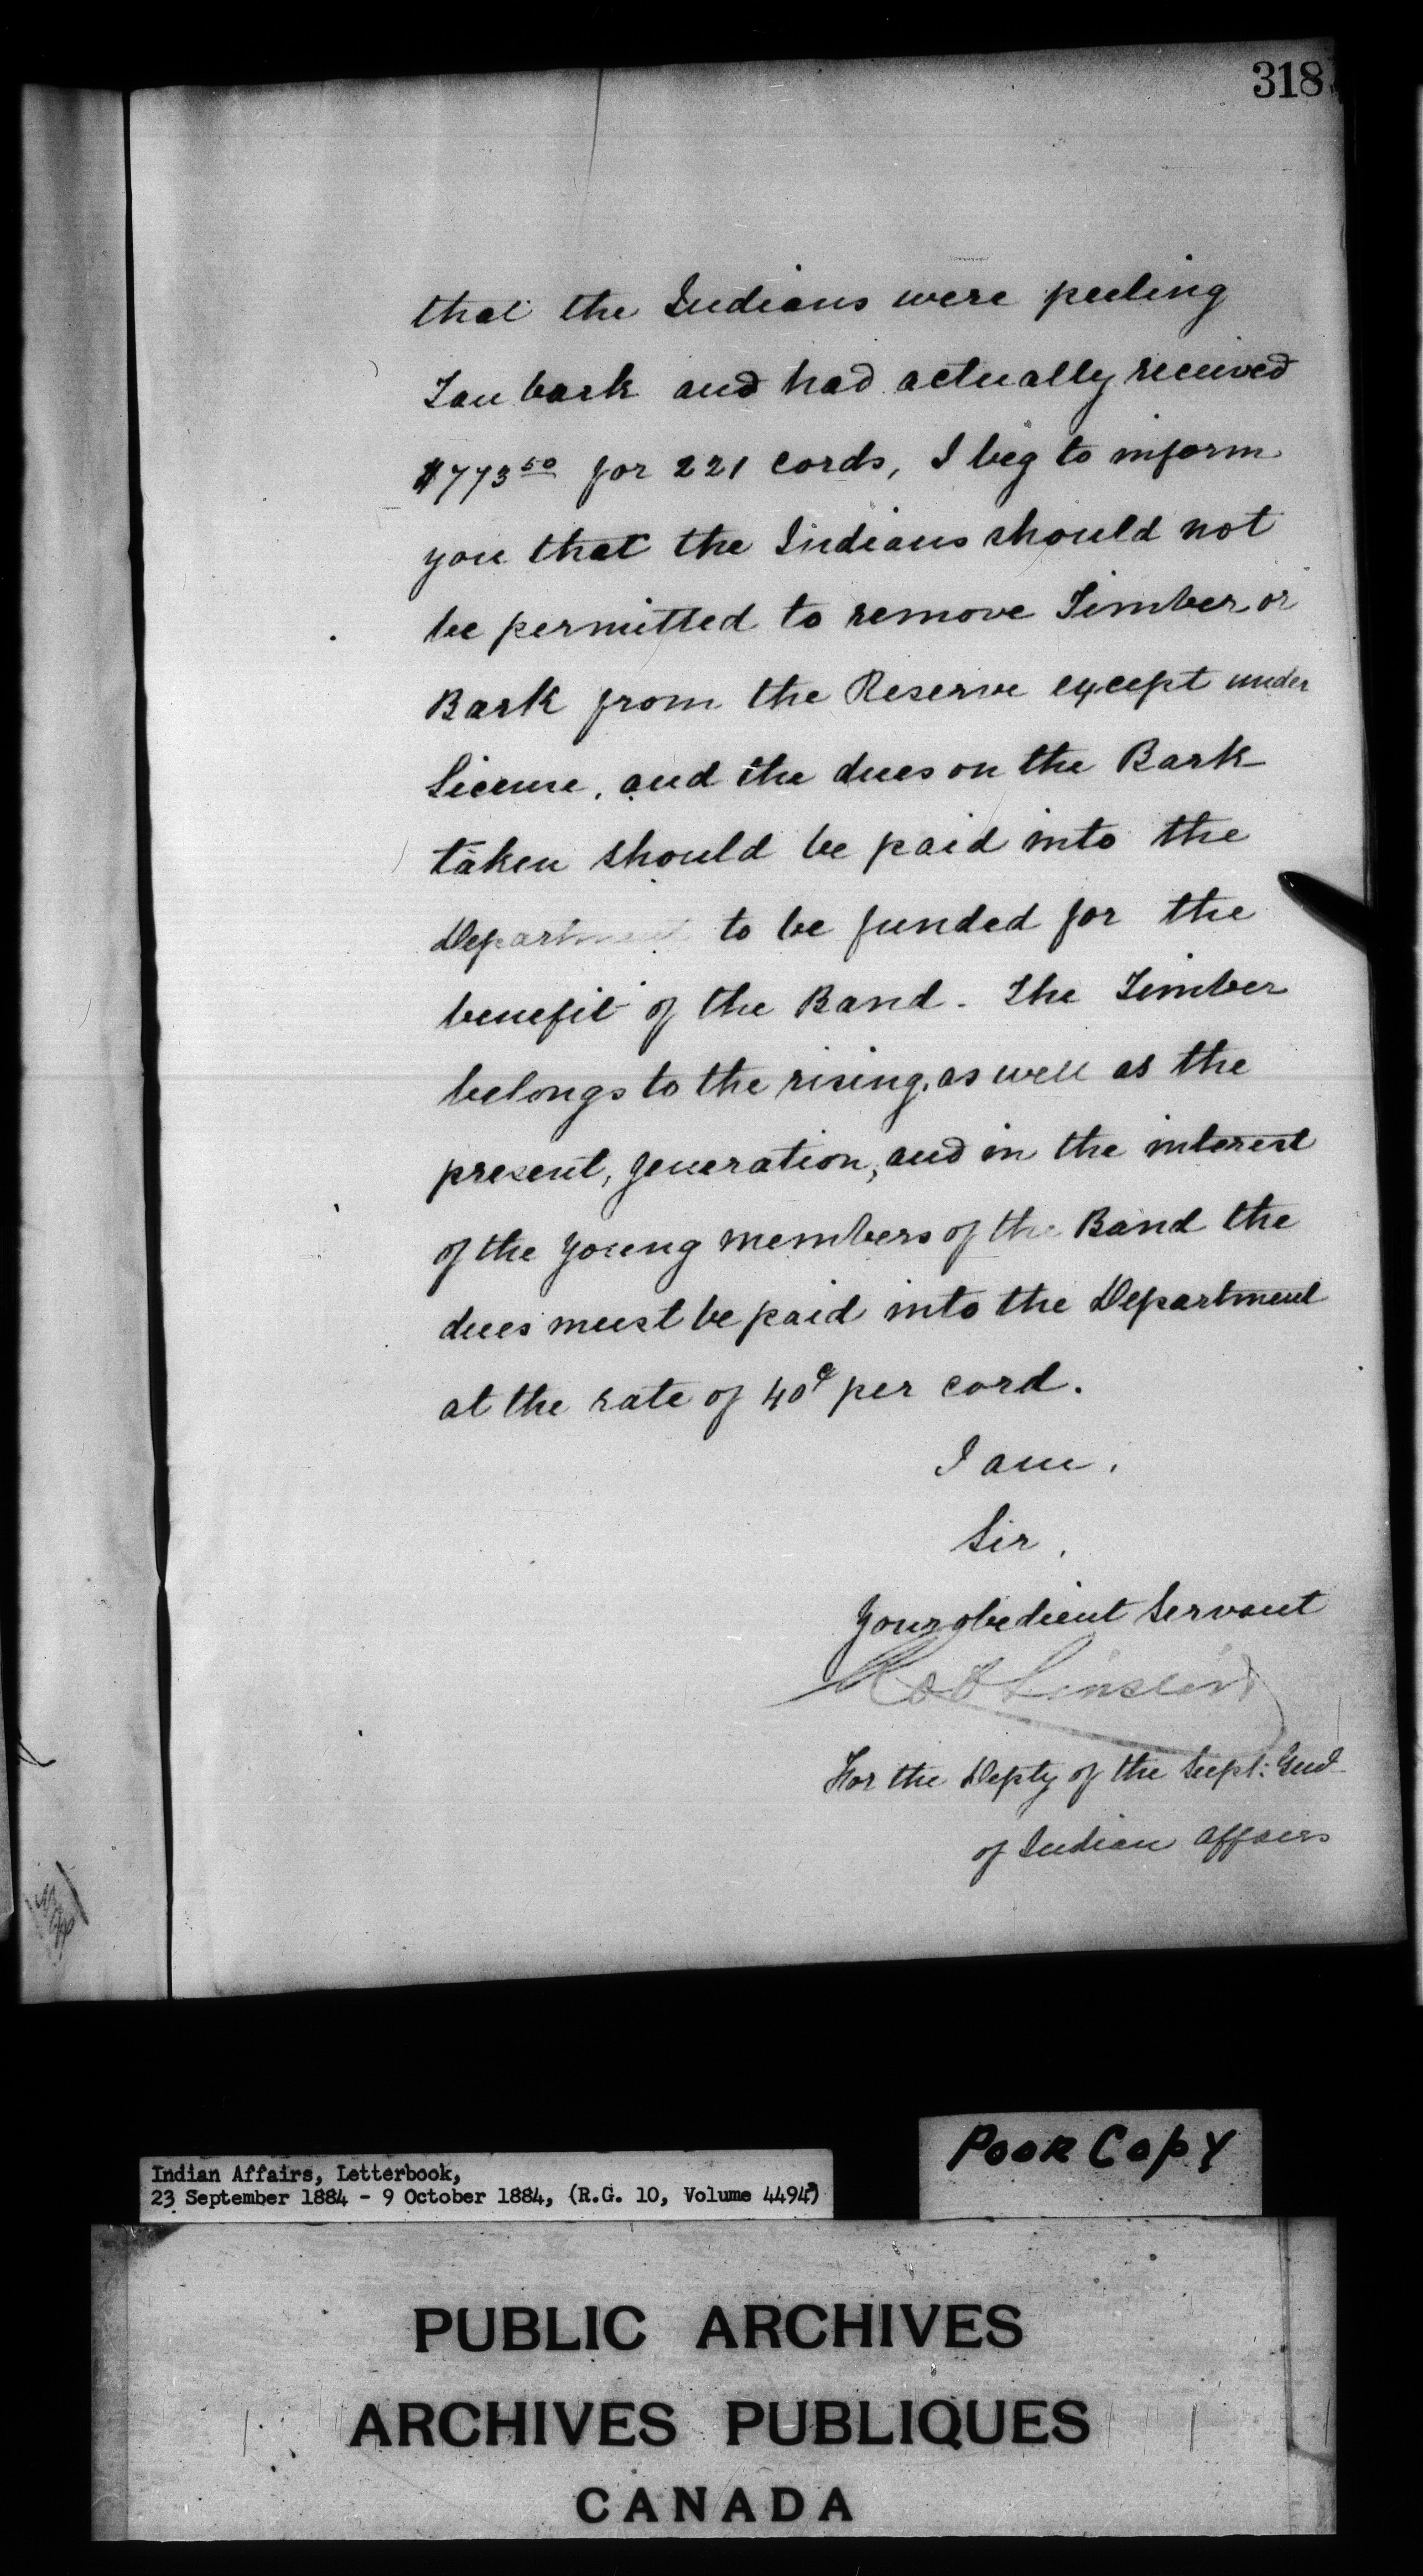 318
that the Indians were peeling
Tan bark and had actually received
$773 50 for 221 cords, I beg to inform
you that the Indians should not
be permitted to remove Timber or
Bark from the Reserve except under
License, and the dues on the Bark
taken should be paid into the
Department to be funded for the
benefit of the Band. The Timber
belongs to the rising, as well as the
present, generation, and in the interest
of the young members of the Band the
dues must be paid into the Department
at the rate of 40c per cord.
I am,
Sir,
Your obedient Servant
For the Depty of the Supt: Genl
of Indian Affairs
Poor Copy
Indian Affairs, Letterbook,
23 September 1884 - 9 October 1884, (R.G. 10, Volume 4494)
PUBLIC ARCHIVES
ARCHIVES PUBLIQUES
CANADA